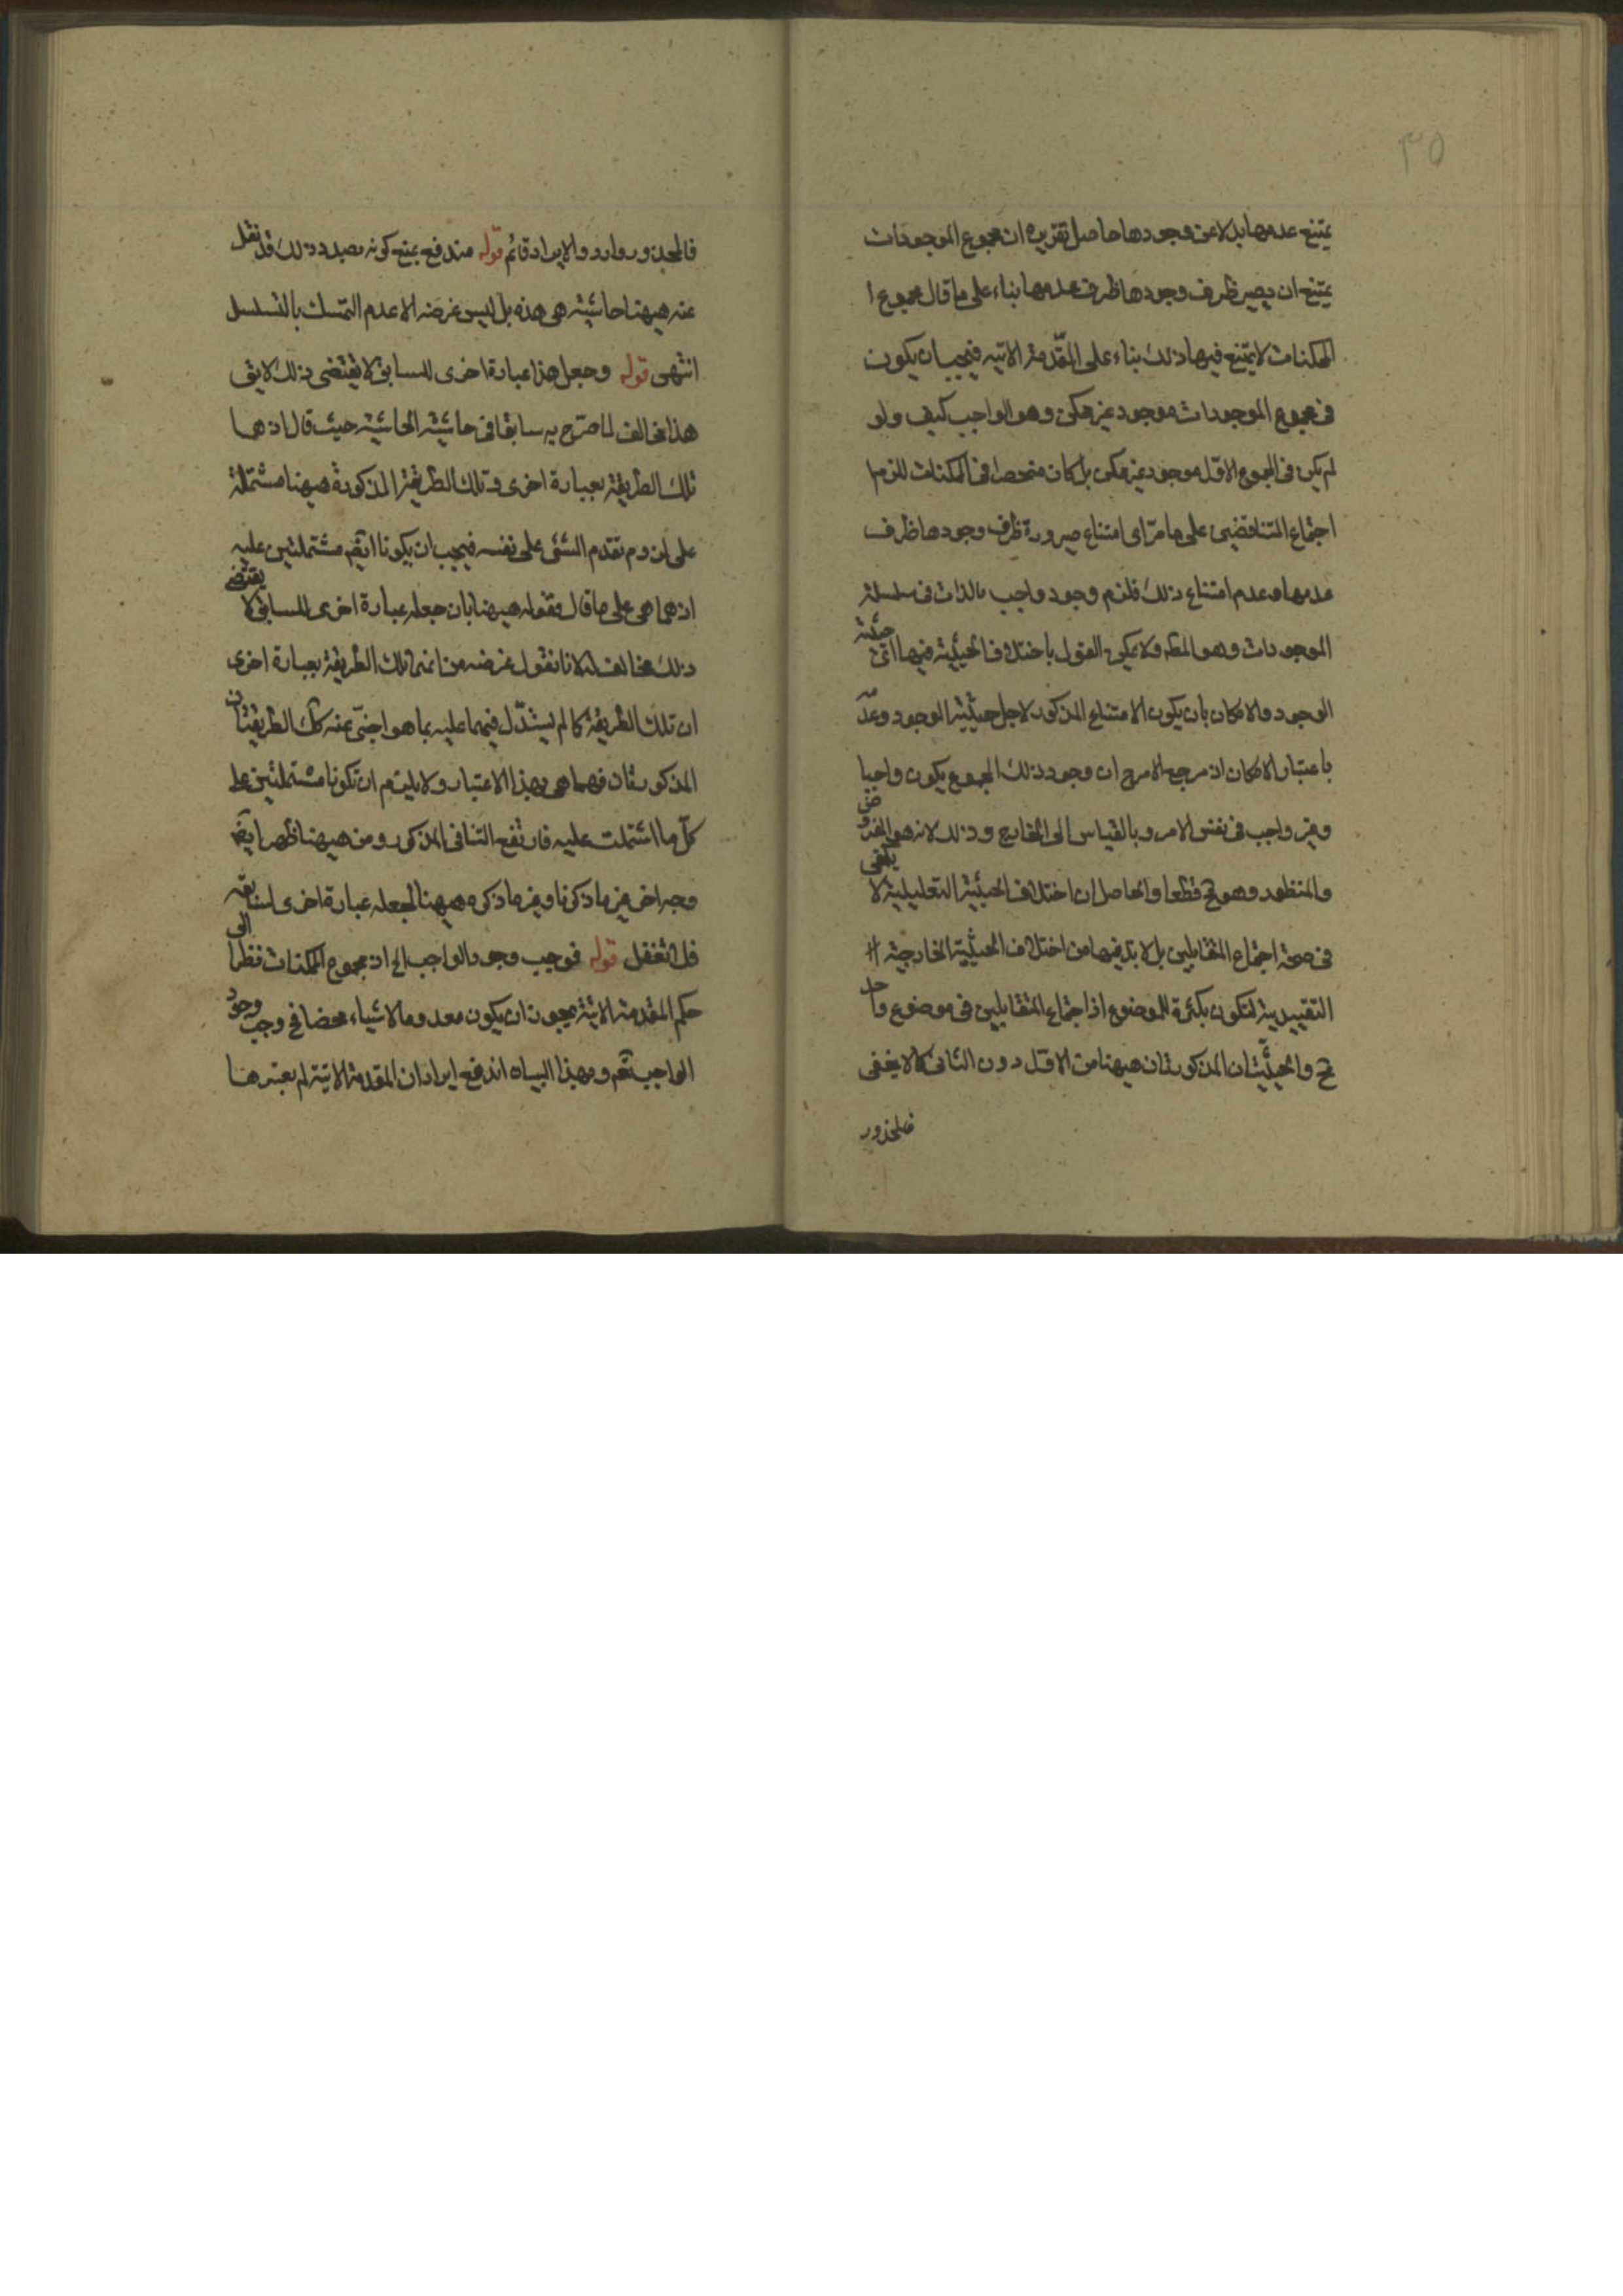 ٣٥
يمتنع عدمها بدلا عن وجودها حاصل تقريره ان مجموع الموجودات
يمتنع ان يصير ظرف وجودها ظرف عدمها بناء على ما قال مجموع ا
لممكنات لا يمتنع فيها ذلك بناء على المقدمة الاتيه فيجب ان يكون
فى مجموع الموجودات موجود غير ممكن وهو الواجب كيف ولو
لم يكن فى المجموع الاول موجود غير ممكن بل كان منحصرا فى الممكنات للزم ا
اجتماع المتناقضين على ما مر اى امتناع صيرورة ظرف وجودها ظرف
عدمها وعدم امتناع ذلك فلزم وجود واجب بالذات فى سلسلة
الموجودات وهو المط ولا يمكن القول باختلاف الحيثية فيها اى حيثية
الوجود والامكان بان يكون الامتناع المذكور لاجل حيثية الوجود وعدمه
باعتبار الامكان اذ مرجع الامر ح ان وجود ذلك المجموع يكون واجبا
وغير واجب فى نفس الامر وبالقياس الى الخارج وذلك لانه هو المفروض
والمنظور وهو مح قطعا والحاصل ان اختلاف الحيثية التعليلية لا يكفى
فى صحة اجتماع المتقابلين بل لا بد فيها من اختلاف الحيثية الخارجية
التقييدية لتكون مكثرة للموضوع اذ اجتماع المتقابلين فى موضوع واحد
مح والحيثيتان المذكورتان هيهنا من الاول دون الثانى كما لا يخفى
فالمحذور
فالمحذور وارد والايراد قائم قوله مندفع بمنع كونه بصدد ذلك قد نقل
عنه هيهنا حاشيته هى هذه بل ليس غرضه الا عدم التمسك بالتسلسل
انتهى قوله وجعل هذا عبارة اخرى للسابق لا يقتضى ذلك لا يق
هذا مخالف لما صرح به سابقا فى حاشية الحاشية حيث قال اذ هما
تلك الطريقة بعبارة اخرى وتلك الطريقة المذكورة هيهنا مشتملة
على لزوم تقدم الشئ على نفسه فيجب ان يكونا ايضم مشتملتين عليه
اذ هما هى على ما قال فقوله هيهنا بان جعله عبارة اخرى للسابق لا يقتضى
ذلك مخالف له لانا نقول غرضه من انهما تلك الطريقة بعبارة اخرى
ان تلك الطريقة كما لم يستدل فيهما عليه بما هو اجنبى عنه كك الطريقتان
المذكورتان فهما هى بهذا الاعتبار ولا يلزم ان تكونا مشتملتين على
كل ما اشتملت عليه فارتفع التنافى المذكور ومن هيهنا ظهر ايضا
وجه اخر غير ما ذكرنا وغير ما ذكره هيهنا لجعله عبارة اخرى لسابقه
فلا تغفل قوله فوجب وجود الواجب الخ اذ مجموع الممكنات نظرا الى
حكم المقدمة الاتية يجوز ان يكون معدوما لا شياء محضا فح وجب وجود
الواجب تم وبهذا البيان اندفع ايراد ان المقدمة الاتية لم يعتبرها